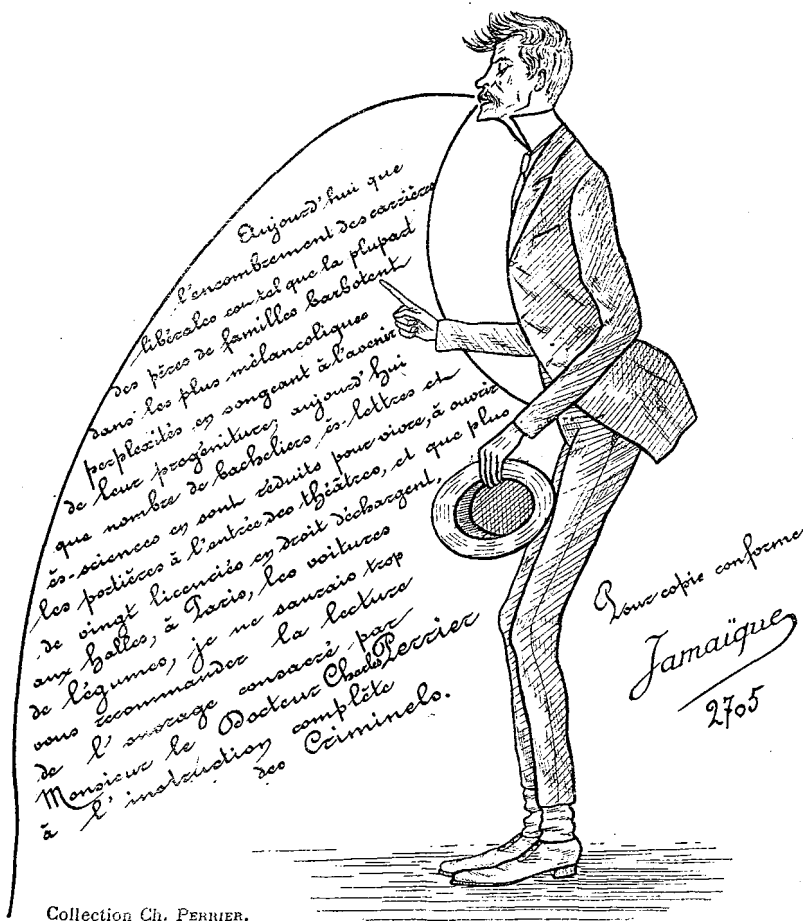 Aujourd'hui que
l'encombrement des carrières
libérales est tel que la plupart
des pères de familles barbotent
dans les plus mélancoliques
perplexités en songeant à l'avenir
de leur progéniture; aujourd'hui
que nombre de bacheliers ès-lettres et
ès-sciences en sont réduits pour vivre, à ouvrir
les portières à l'entrée des théâtres, et que plus
de vingt licenciés en droit déchargent,
aux Halles, à Paris, les voitures
de légumes, je ne saurais trop
vous recommander la lecture
de l'ouvrage consacré par
Monsieur le Docteur Charles Perrier
à l'instruction complète
des Criminels.
Pour copie conforme
Jamaïque
2705
Collection Ch. PERRIER.